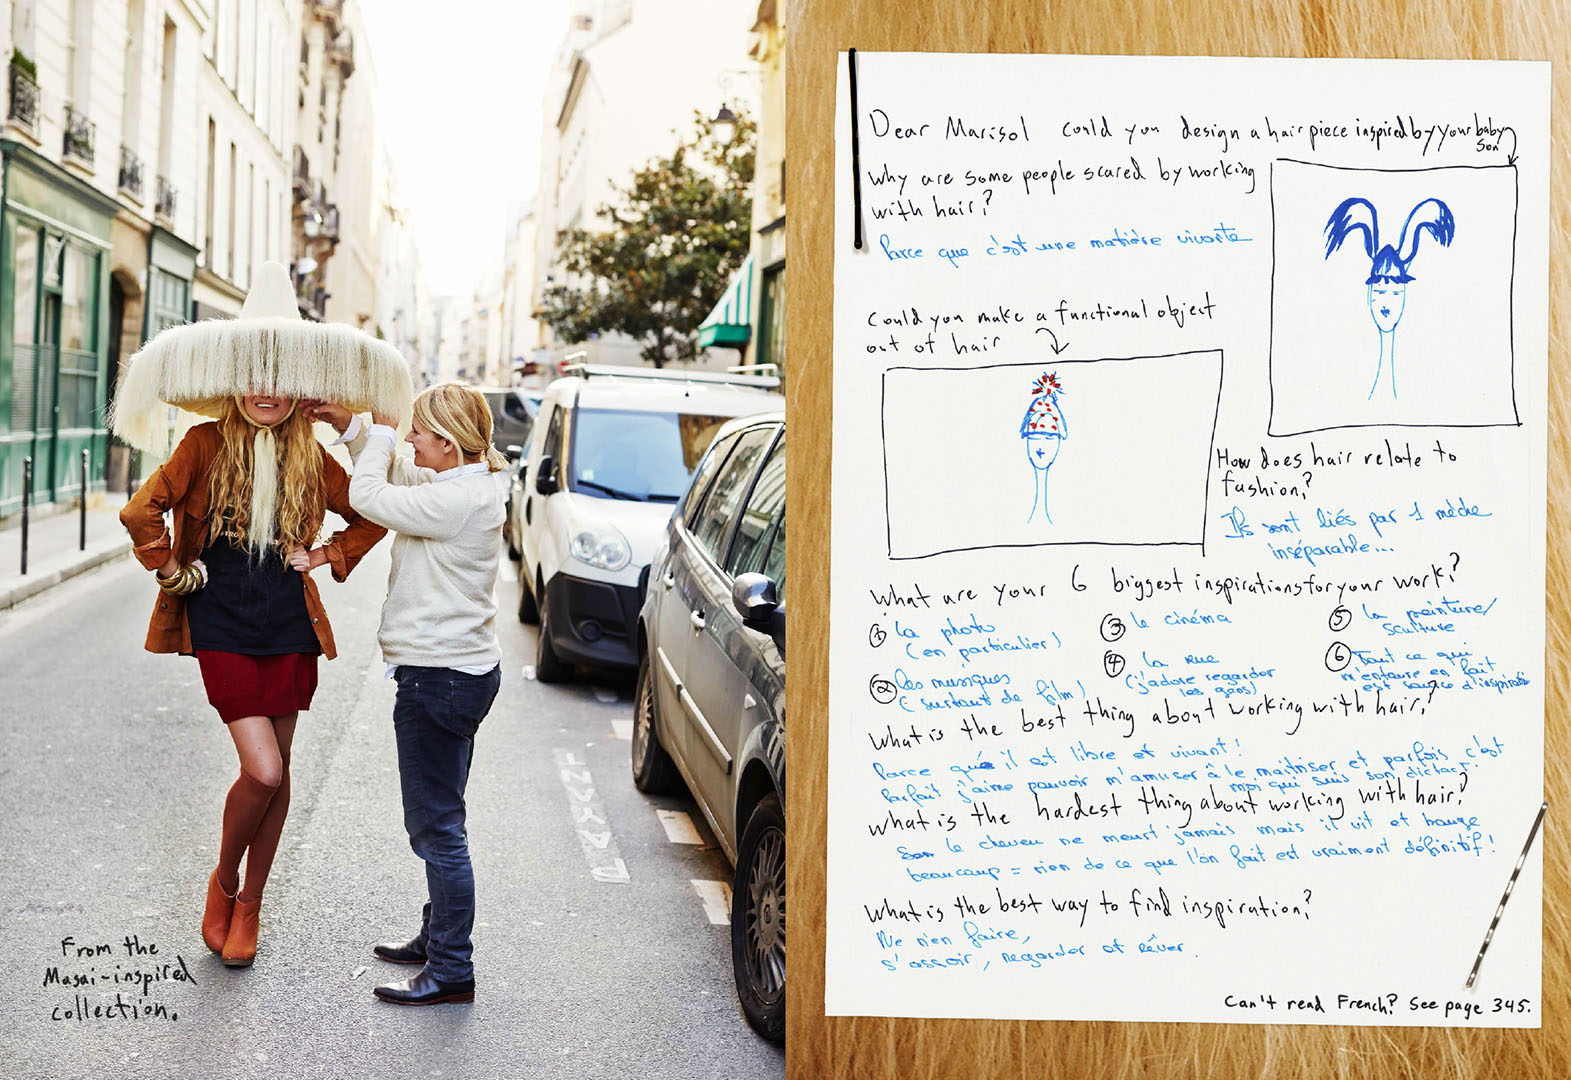 From the
Masai-inspired
collection.
Dear Marisol could you design a hair piece inspired by your baby
son
why are some people scared by working
with hair?
Parce que c'est une matière vivante
Could you make a functional object
out of hair
How does hair relate to
fashion?
Ils sont liés par 1 mèche
inséparable...
What are your 6 biggest inspirations for your work?
① la photo
(en particulier)
② les musiques
(surtout de film)
③ le cinéma
④ la rue
(j'adore regarder
les gens)
⑤ la peinture/
sculture
⑥ Tout ce qui
m'entoure en fait
est source d'inspiration
What is the best thing about working with hair?
Parce qu'il est libre et vivant!
Parfait j'aime pouvoir m'amuser à le maitriser et parfois c'est
moi qui suis son dictact.
What is the hardest thing about working with hair?
le cheveu ne meurt jamais mais il vit et bouge
beaucoup = rien de ce que l'on fait est vraiment définitif!
What is the best way to find inspiration?
Ne rien faire,
s'assoir, regarder et rêver.
Can't read French? See page 345.